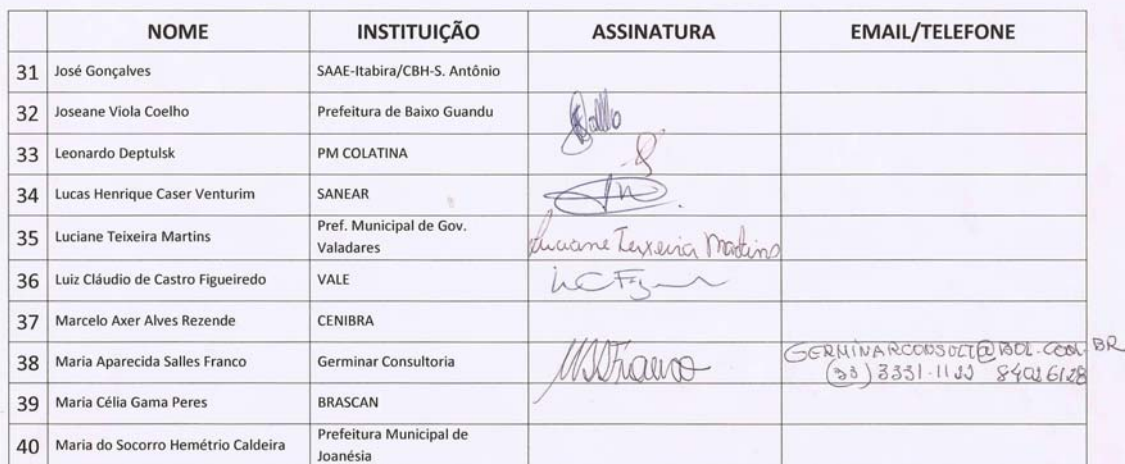 NOME INSTITUIÇÃO ASSINATURA EMAIL/TELEFONE
31 José Gonçalves SAAE-Itabira/CBH-S. Antônio
32 Joseane Viola Coelho Prefeitura de Baixo Guandu
33 Leonardo Deptulsk PM COLATINA
34 Lucas Henrique Caser Venturim SANEAR
35 Luciane Teixeira Martins Pref. Municipal de Gov.
Valadares Luciane Teixeira Martins
36 Luiz Cláudio de Castro Figueiredo VALE
37 Marcelo Axer Alves Rezende CENIBRA
38 Maria Aparecida Salles Franco Germinar Consultoria
(33) 3331-1122
39 Maria Célia Gama Peres BRASCAN
40 Maria do Socorro Hemétrio Caldeira Prefeitura Municipal de
Joanésia